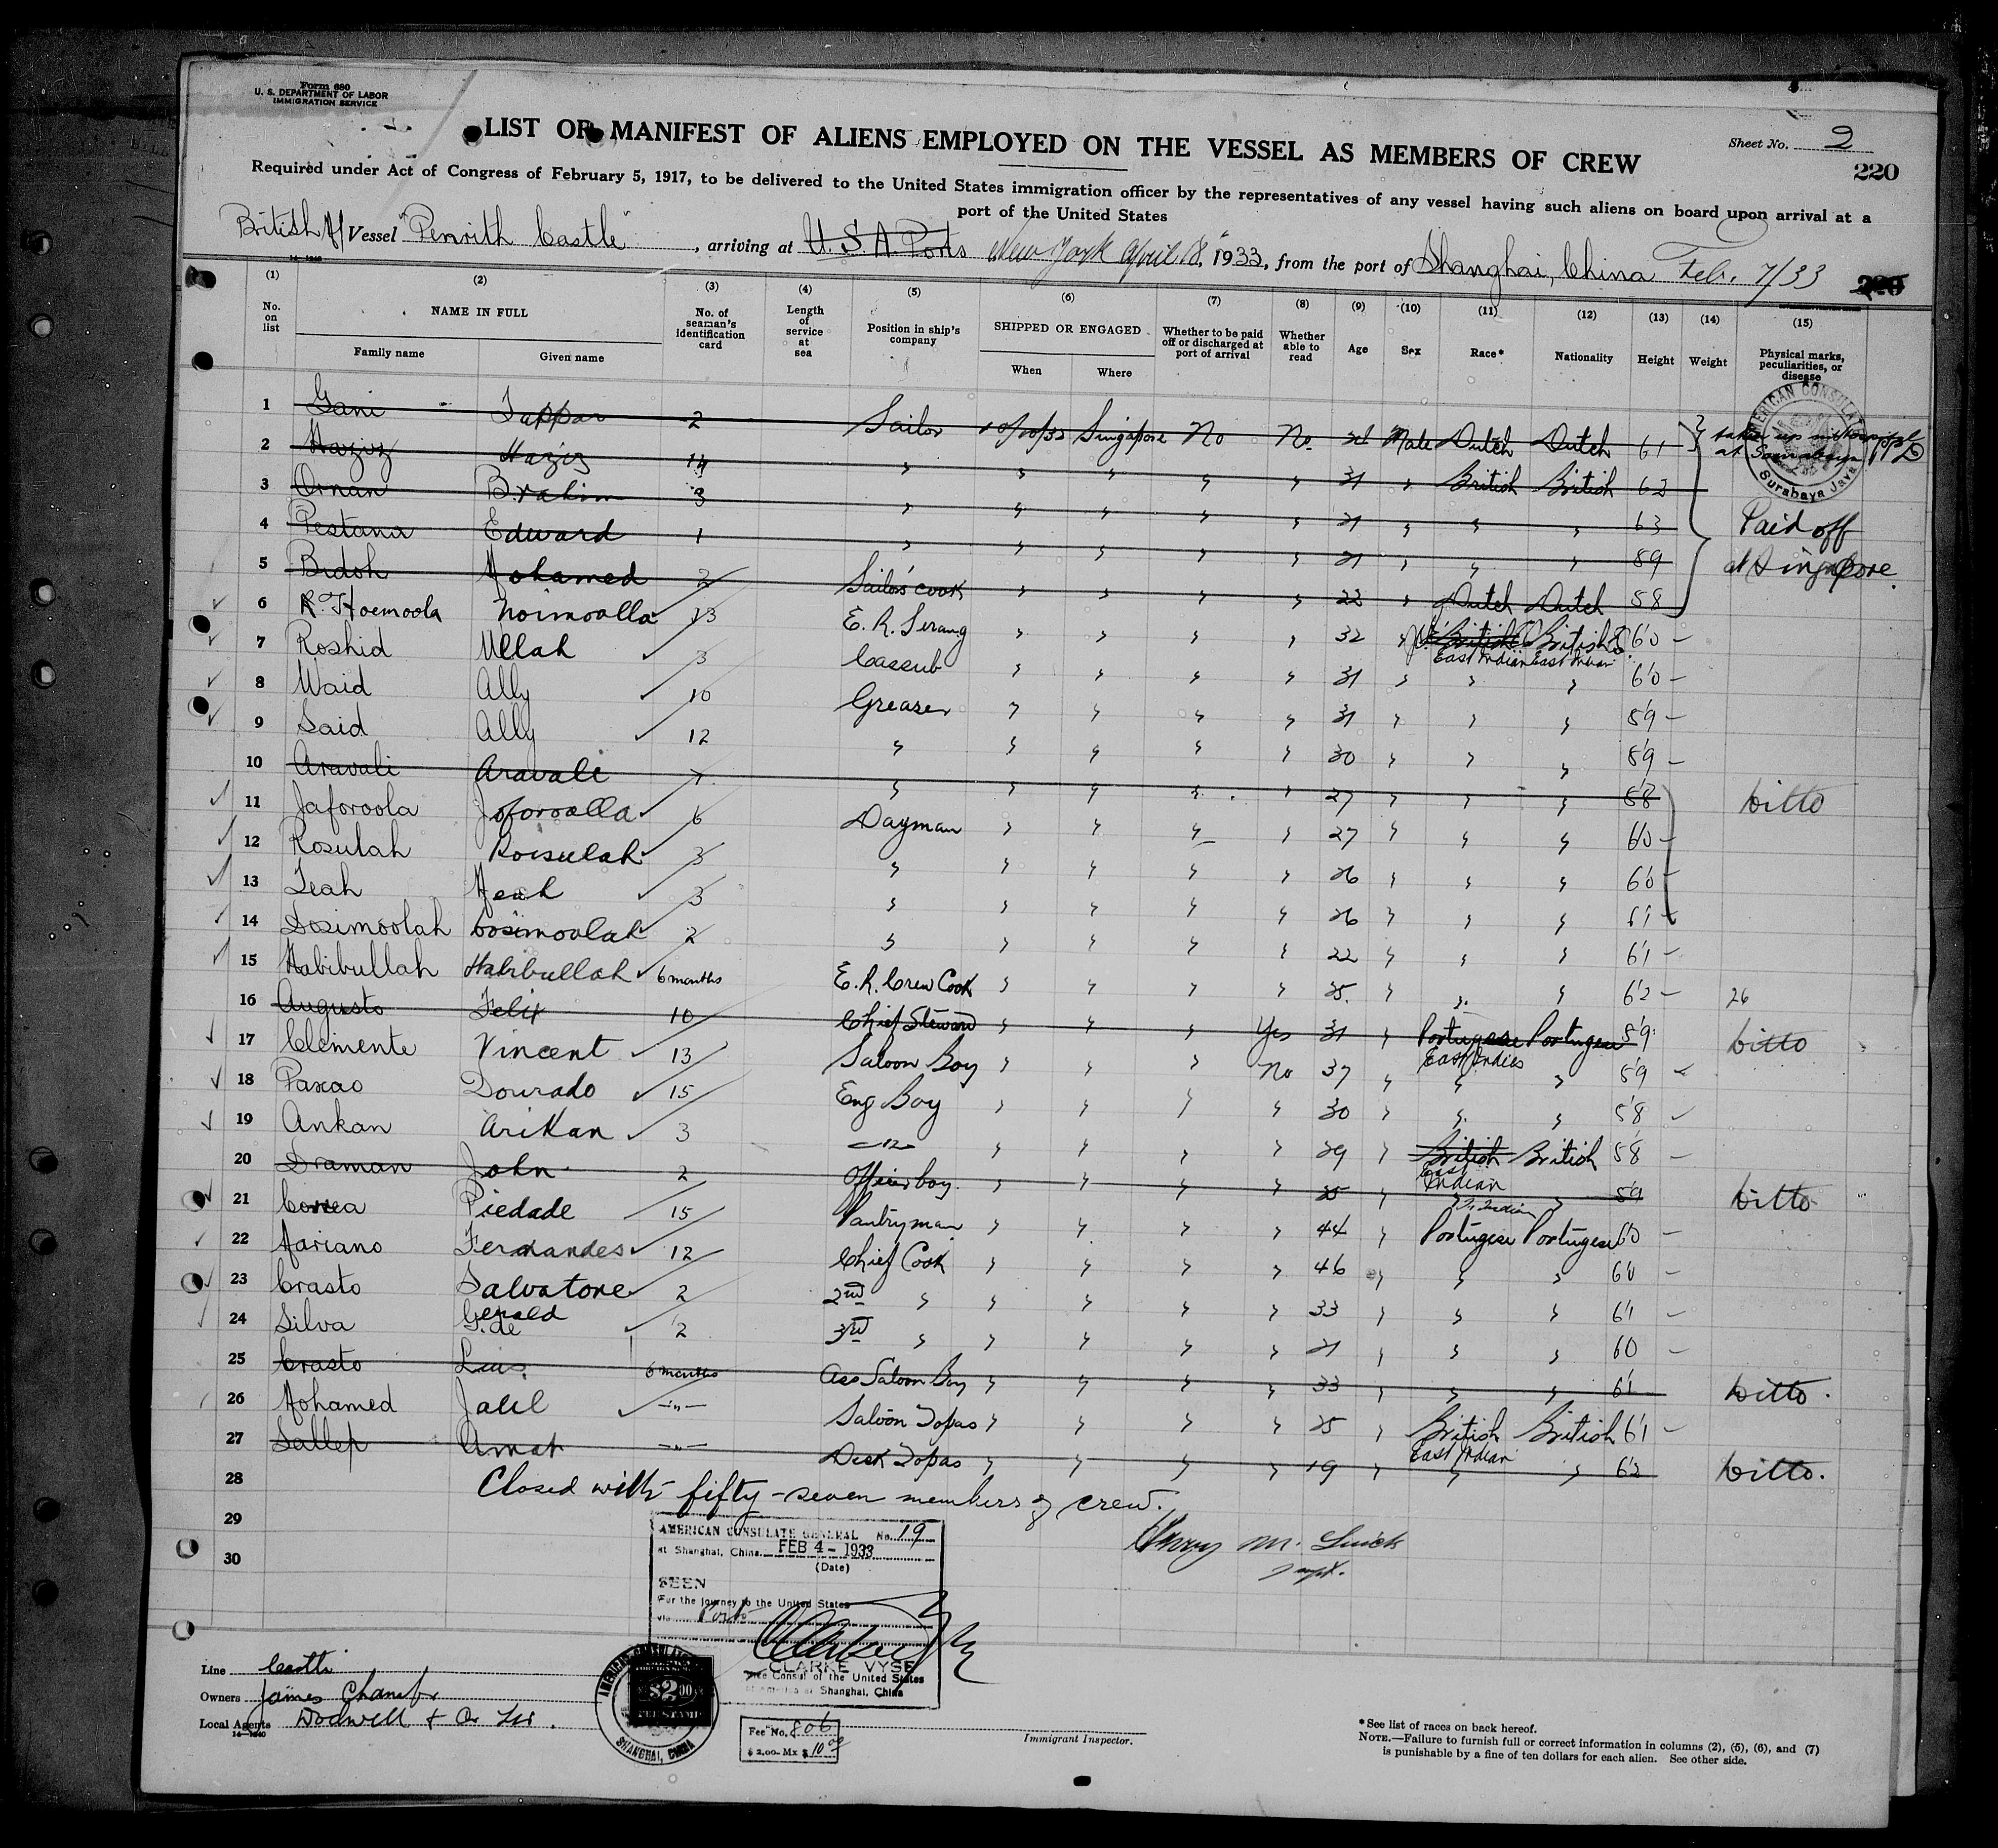 Form 680
U. S. DEPARTMENT OF LABOR
IMMIGRATION SERVICE
LIST OR MANIFEST OF ALIENS EMPLOYED ON THE VESSEL AS MEMBERS OF CREW
Sheet No. 2
220
Required under Act of Congress of February 5, 1917, to be delivered to the United States immigration officer by the representatives of any vessel having such aliens on board upon arrival at a
port of the United States
British Vessel "Penrith Castle", arriving at U.S.A Ports New York April 18, 1933, from the port of Shanghai, China Feb. 7/33
14-1240
(1) (2) (3) (4) (5) (6) (7) (8) (9) (10) (11) (12) (13) (14) (15)
No. on list NAME IN FULL No. of seaman's identification card Length of service at sea Position in ship's company SHIPPED OR ENGAGED Whether to be paid off or discharged at port of arrival Whether able to read Age Sex Race* Nationality Height Weight Physical marks, peculiarities, or disease
Family name Given name When Where
1 Gani Tappar 2 Sailor Singapore No No Male Dutch Dutch 61
2 Haziz Haziz 14 " " " " " 31 " British British 62
3 Oman Brahim 3 " " " " " 21 " " " 63
4 Pestana Edward 1 " " " " " 21 " " " 59
Paid off
at Singapore.
5 Bidoh Mohamed 2 Sailors cook " " " " 22 " Dutch Dutch 58
6 R. Hoemoola Noimoolla 13 E. R. Serang " " " " 32 " British British 60
East Indian East Indian
7 Roshid Ullah 3 Cassub " " " " 31 " " " 60
8 Waid Ally 10 Greaser " " " " 31 " " " 59
9 Said Ally 12 " " " " " 30 " " " 59
10 Aravali Aravali " " " " " 27 " " " 58 Ditto
11 Jaforoola Joforoolla 6 Dayman " " " " 27 " " " 60
12 Rosulah Roisulah 3 " " " " " 26 " " " 60
13 Teah 3 " " " " " 26 " " " 61
14 Dosimoolah Dosimoolah 2 " " " " " 22 " " " 61
15 Habibullah Habibullah 6 months E. R. Crew Cook " " " " 25 " " " 62 26
16 Augusto Felix 10 Chief Steward " " " Yes 31 " Portugese Portugese 59 Ditto
East Indies
17 Clemente Vincent 13 Saloon Boy " " " No 37 " " " 59
18 Paxao Dourado 15 Eng Boy " " " " 30 " " " 58
19 Ankan Arikan 3 -"- " " " " 29 " British British 58
East Indian
20 Draman John 2 Officer boy " " " " 25 " " " 59 Ditto
21 Correa Piedade 15 Pantryman " " " " 44 " Portugese Portugese 60
22 Mariano Fernandes 12 Chief Cook " " " " 46 " " " 60
23 Crasto Salvatore 2 2nd " " " " " 33 " " " 61
24 Silva Gerald de 2 3rd " " " " " 21 " " " 60
25 Crasto Luis 6 months Ass Saloon Boy " " " " 33 " " " 61 Ditto
26 Mohamed Jalil -"- Saloon Topas " " " " 25 " British British 61
East Indian
27 Sallep Amat -"- Deck Topas " " " " 19 " " " 62 Ditto.
28 Closed with fifty-seven members of crew.
29
30
AMERICAN CONSULATE GENERAL No. 19
at Shanghai, China. FEB 4 - 1933
(Date)
SEEN
For the journey to the United States
CLARKE VYSE
Vice Consul of the United States
of America at Shanghai, China
$2.00
SHANGHAI, CHINA
AMERICAN CONSULATE
Surabaya Java
Line Castle
Owners James Chambers
Local Agents Dodwell & Co Ltd.
14-1240
Fee No. 806
$ 2.00- Mx $ 10.00
Immigrant Inspector.
*See list of races on back hereof.
NOTE.—Failure to furnish full or correct information in columns (2), (5), (6), and (7)
is punishable by a fine of ten dollars for each alien. See other side.